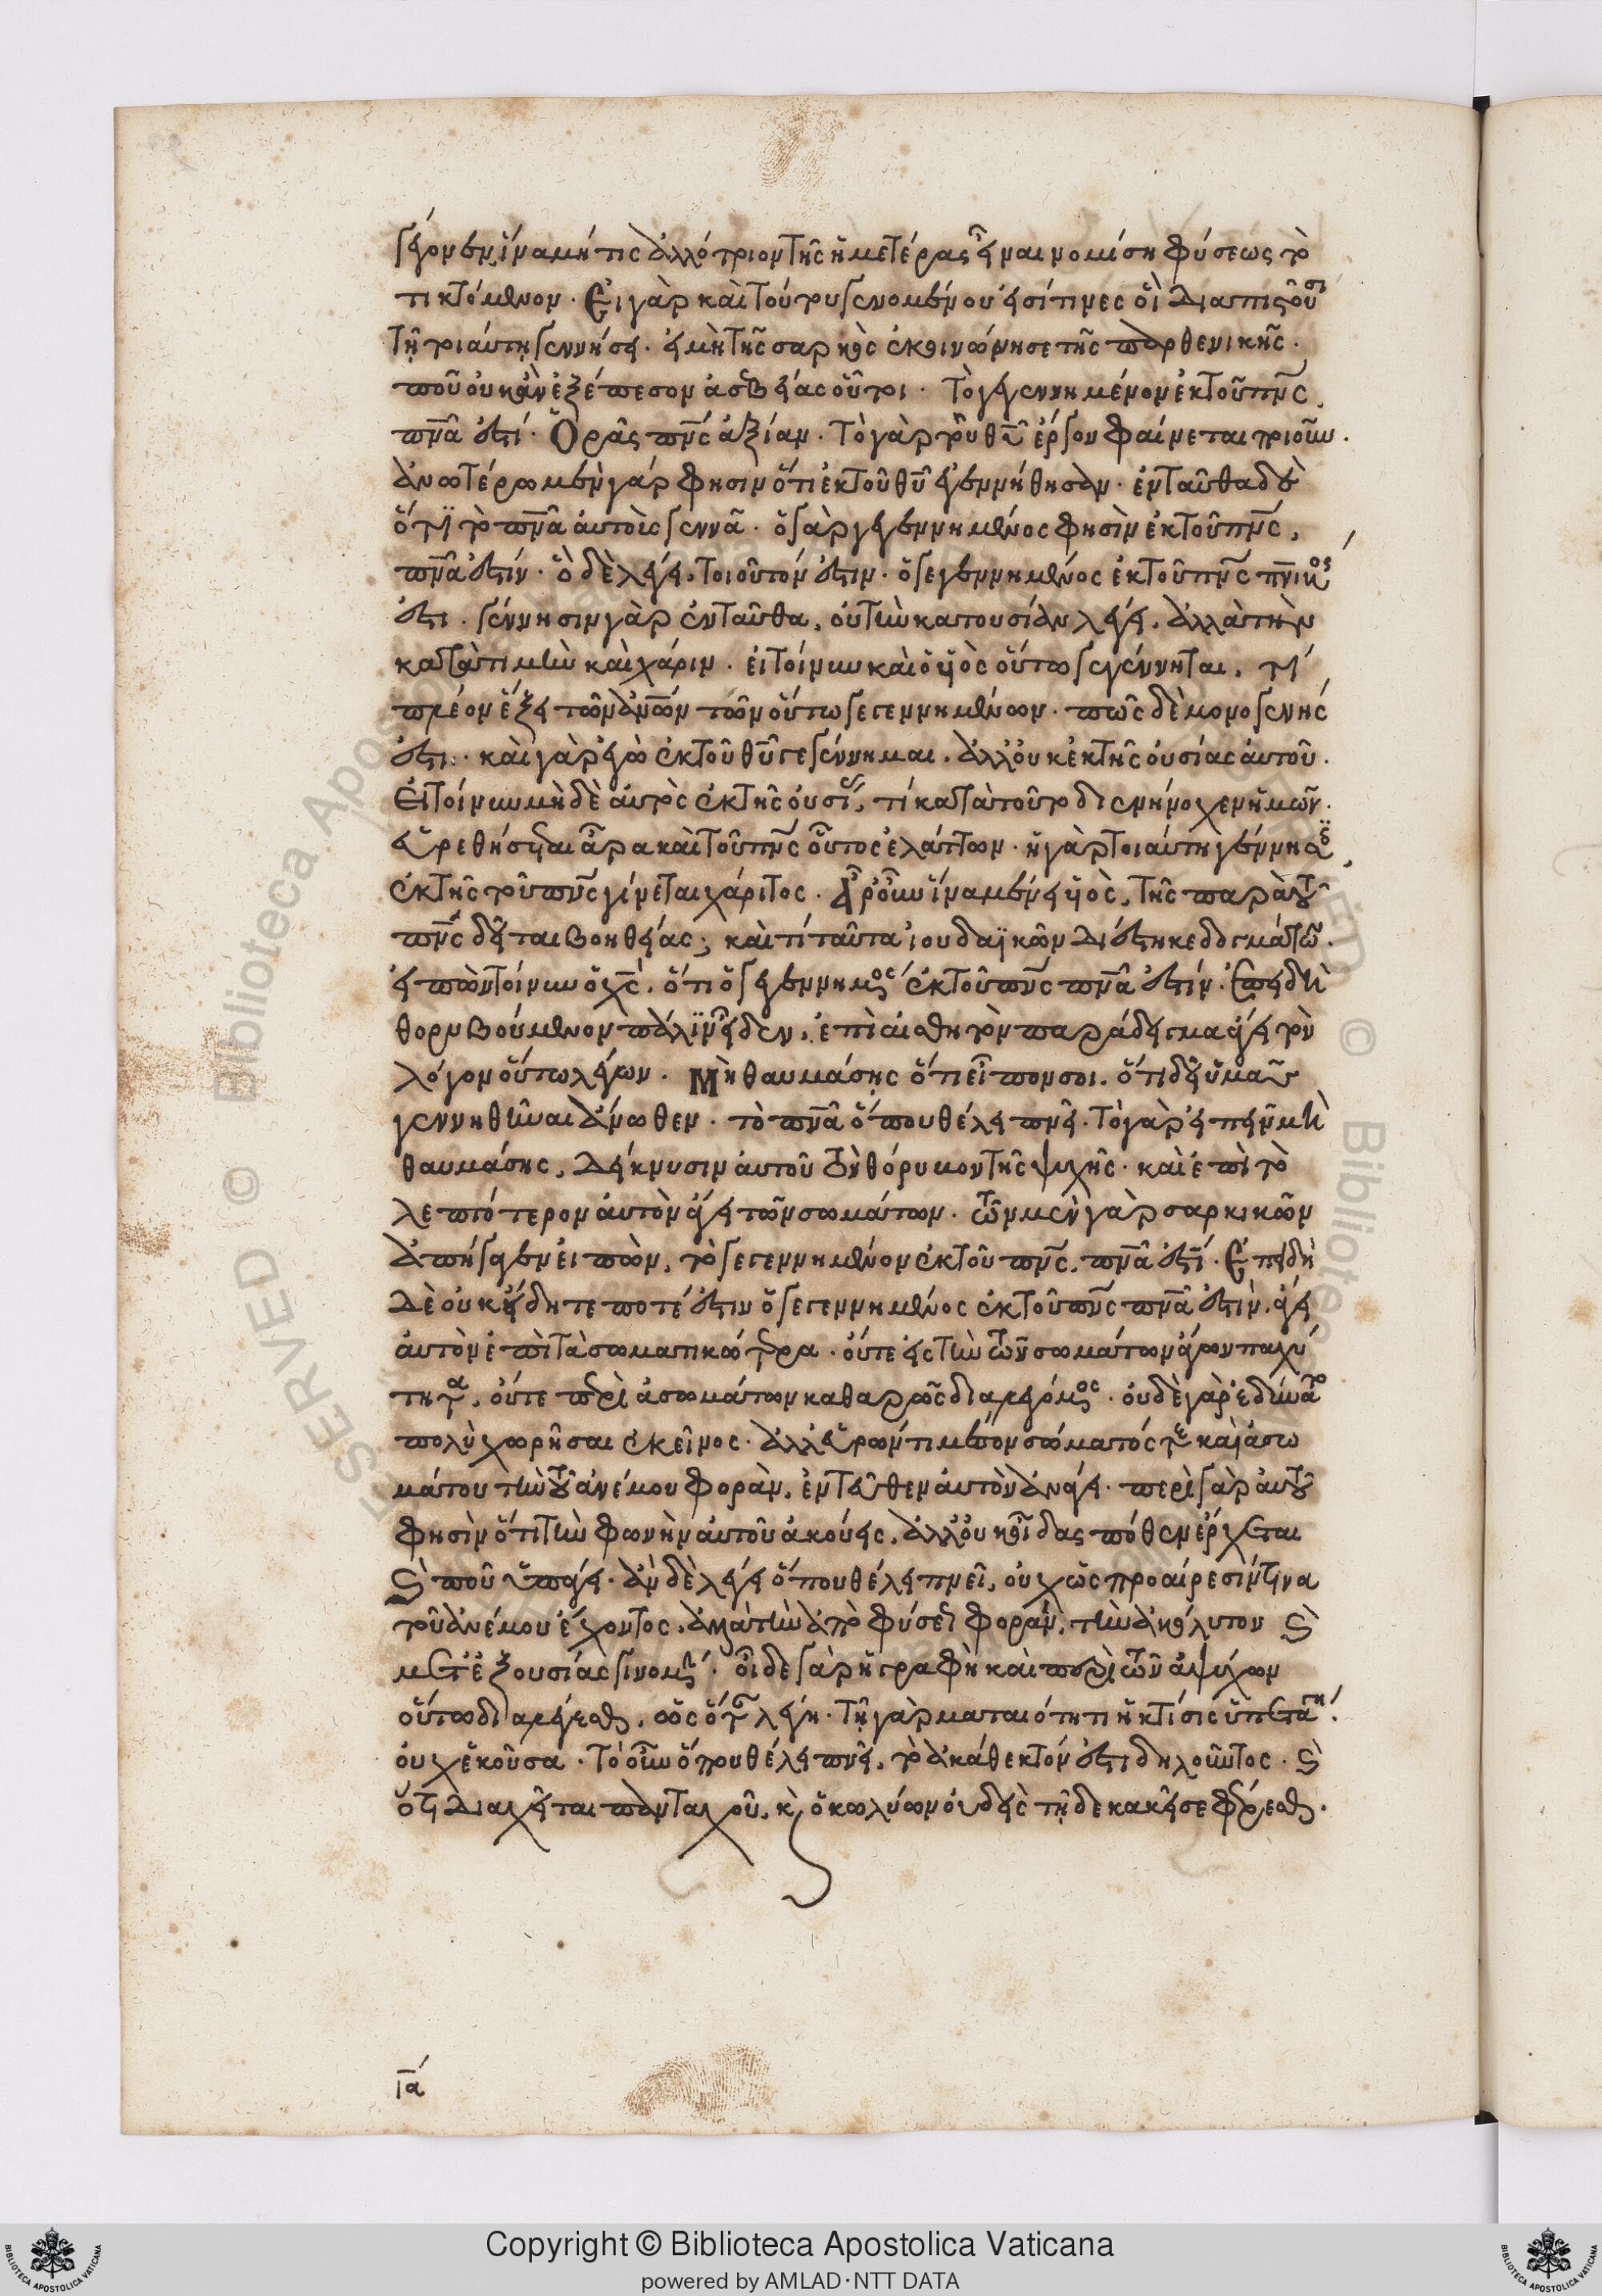 γέγονεν, ἵνα μή τις ἀλλότριον τῆς ἡμετέρας εἶναι νομίση φύσεως τὸ
τικτόμενον. Εἰ γὰρ καὶ τούτου γενομένου εἰσί τινες οἱ διαπιστοῦσι
τῆ τοιαύτη γεννήσει. εἰ μὴ τῆς σαρκὸς ἐκοινώνησε τῆς παρθενικῆς.
ποῦ οὐκ ἂν ἐξέπεσον ἀσεβείας οὗτοι. Τὸ γεγεννημένον ἐκ τοῦ πνς
πνα ἐστί. Ὁρᾶς πνς ἀξίαν. Τὸ γὰρ τοῦ θυ ἔργον φαίνεται ποιοῦν.
ἀνωτέρω μὲν γάρ φησιν ὅτι ἐκ τοῦ θυ ἐγεννήθησαν. ἐνταῦθα δὲ
ὅτι τὸ πνα αὐτοὺς γεννᾶ. ὁ γὰρ γεγεννημένος φησὶν ἐκ τοῦ πνς,
πνα ἐστίν. ὃ δὲ λέγει, τοιοῦτόν ἐστιν. ὁ γεγεννημένος ἐκ τοῦ πνς πνικός
ἐστι. γέννησιν γὰρ ἐνταῦθα, οὐ τὴν κατ' οὐσίαν λέγει, ἀλλὰ τὴν
κατὰ τιμὴν καὶ χάριν. εἰ τοίνυν καὶ ὁ υἱὸς οὕτω γεγέννηται, τί
πλέον ἕξει τῶν ἀνων τῶν οὕτω γεγεννημένων. πῶς δὲ μονογενής
ἐστι. καὶ γὰρ ἐγὼ ἐκ τοῦ θυ γεγέννημαι. ἀλλ' οὐκ ἐκ τῆς οὐσίας αὐτοῦ.
Εἰ τοίνυν μὴ δὲ αὐτὸς ἐκ τῆς οὐσίας, τί κατὰ τοῦτο διενήνοχεν ἡμῶν.
εὑρεθήσεται ἄρα καὶ τοῦ πνς οὗτος ἐλάττων. ἡ γὰρ τοιαύτη γέννησις
ἐκ τῆς τοῦ πνς γίνεται χάριτος. Ἆρ' οὖν ἵνα μένη υἱὸς, τῆς παρὰ τοῦ
πνς δεῖται βοηθείας; καὶ τί ταῦτα ἰουδαϊκῶν διέστηκε δογμάτων.
εἰπὼν τοίνυν ὁ χς, ὅτι ὁ γεγεννημένος ἐκ τοῦ πνς πνα ἐστίν. Ἐπειδὴ
θορυβούμενον πάλιν εἶδεν, ἐπὶ αἰσθητὸν παράδειγμα ἄγει τὸν
λόγον οὕτω λέγων. Μὴ θαυμάσης ὅτι εἶπόν σοι. ὅτι δεῖ ὑμᾶς
γεννηθῆναι ἄνωθεν. τὸ πνα ὅπου θέλει πνεῖ. Τὸ γὰρ εἰπεῖν μὴ
θαυμάσης, δείκνυσιν αὐτοῦ τὸν θόρυβον τῆς ψυχῆς. καὶ ἐπὶ τὸ
λεπτότερον αὐτὸν ἄγει τῶν σωμάτων. τῶν μὲν γὰρ σαρκικῶν
ἀπήγαγεν εἰπὼν, τὸ γεγεννημένον ἐκ τοῦ πνς, πνα ἐστί. Ἐπειδὴ
δὲ οὐκ ἤδει τί ποτέ ἐστιν ὁ γεγεννημένος ἐκ τοῦ πνς πνα ἐστὶν, ἄγει
αὐτὸν ἐπὶ τὰ σωματικώτερα. οὔτε εἰς τὴν τῶν σωμάτων ἄγων παχύ
τητα, οὔτε περὶ ἀσωμάτων καθαρῶς διαλεγόμενος. οὐδὲ γὰρ ἐδύνατο
πολὺ χωρῆσαι ἐκεῖνος. ἀλλ' εὑρών τι μέσον σώματός τε καὶ ἀσω
μάτου τὴν τοῦ ἀνέμου φορὰν, ἐντεῦθεν αὐτὸν ἀνάγει. περὶ γὰρ αὐτοῦ
φησὶν ὅτι τὴν φωνὴν αὐτοῦ ἀκούεις, ἀλλ' οὐκ οἶδας πόθεν ἔρχεται
καὶ ποῦ ὑπάγει. ἂν δὲ λέγει ὅπου θέλει πνεῖ, οὐχ ὡς προαίρεσίν τινα
τοῦ ἀνέμου ἔχοντος, ἀλλὰ τὴν ἀπὸ φύσεως φορὰν, τὴν ἀκώλυτον καὶ
μετ' ἐξουσίας γινομένην. οἶδε γὰρ ἡ γραφὴ καὶ περὶ τῶν ἀψύχων
οὕτω διαλέγεσθαι, ὡς ὅταν λέγη. Τῆ γὰρ ματαιότητι ἡ κτίσις ὑπετάγη.
οὐχ ἑκοῦσα. Τὸ οὖν ὅπου θέλει πνεῖ, τὸ ἀκάθεκτόν ἐστι δηλοῦντος. καὶ
ὅτι διαχεῖται πανταχοῦ, καὶ ὁ κωλύων οὐδεὶς τῆδε κἀκεῖσε φέρεσθαι.
ια
Copyright © Biblioteca Apostolica Vaticana
powered by AMLAD·NTT DATA